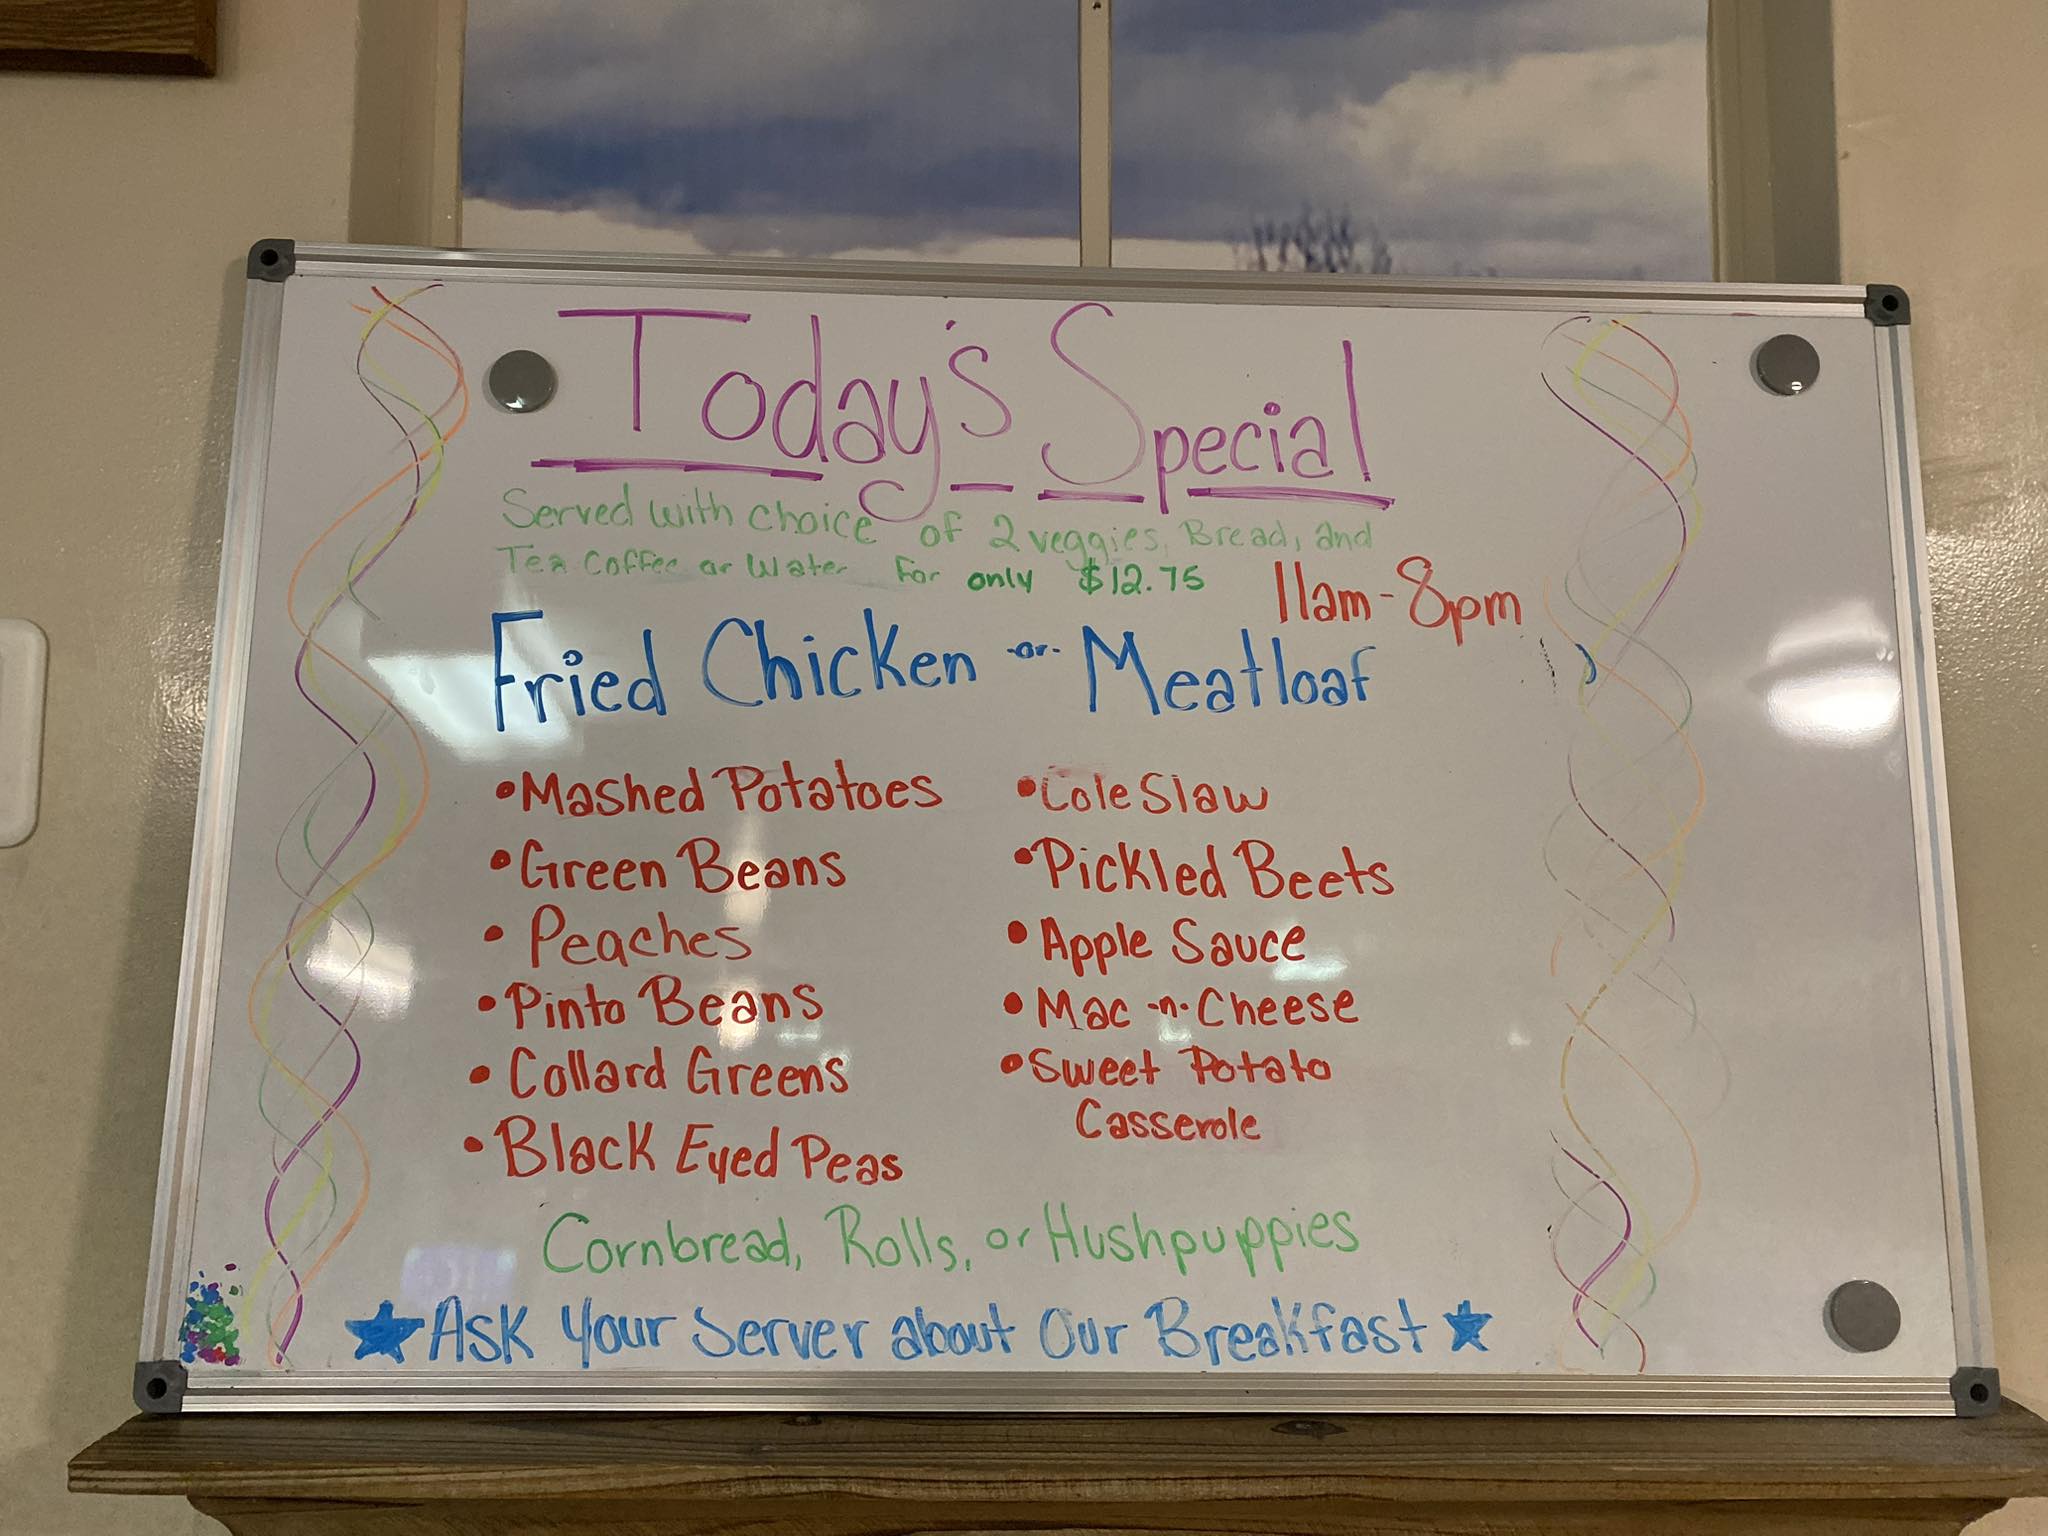 Today's Special
Served with choice of 2 veggies, Bread, and
Tea Coffee or Water For only $12.75
11am-8pm
Fried Chicken -or- Meatloaf
• Mashed Potatoes
• Green Beans
• Peaches
• Pinto Beans
• Collard Greens
• Black Eyed Peas
• Cole Slaw
• Pickled Beets
• Apple Sauce
• Mac -n- Cheese
• Sweet Potato
Casserole
Cornbread, Rolls, or Hushpuppies
★ Ask Your Server about Our Breakfast ★